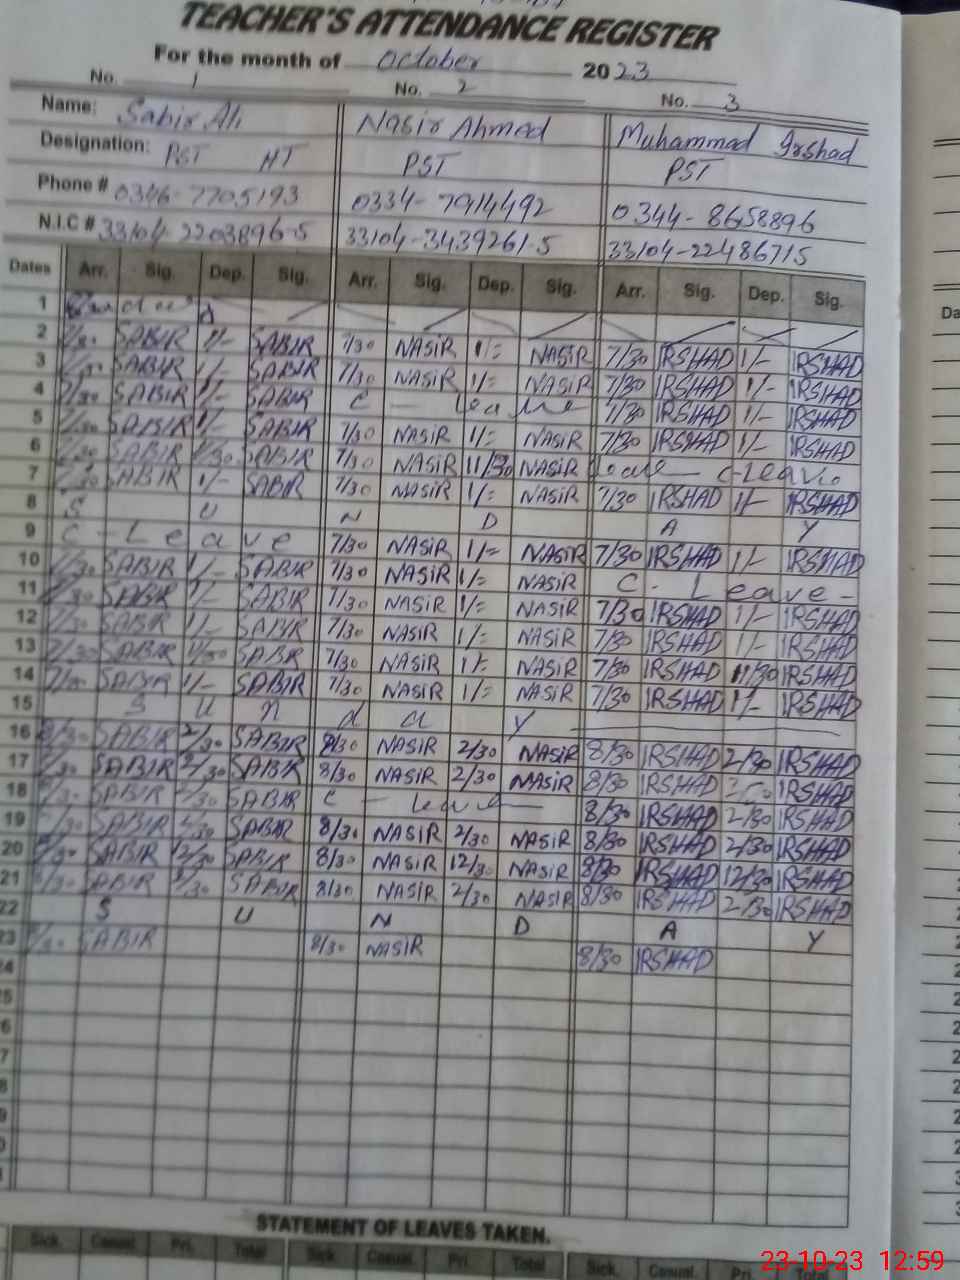 TEACHER'S ATTENDANCE REGISTER
For the month of October 2023
No. 1 No. 2 No. 3
Name: Sabir Ali Nasir Ahmed Muhammad Irshad
Designation: PST HT PST PST
Phone # 0346-7705193 0334-7914492 0344-8658896
N.I.C # 33104-2203896-5 33104-3439261-5 33104-22486715
Dates Arr. Sig. Dep. Sig. Arr. Sig. Dep. Sig. Arr. Sig. Dep. Sig.
1
2 7/30 SABIR 1/- SABIR 7/30 NASIR 1/= NASIR 7/30 IRSHAD 1/- IRSHAD
3 7/30 SABIR 1/- SABIR 7/30 NASIR 1/= NASIR 7/30 IRSHAD 1/- IRSHAD
4 7/30 SABIR 1/- SABIR C - leave 7/30 IRSHAD 1/- IRSHAD
5 7/30 SABIR 1/- SABIR 7/30 NASIR 1/= NASIR 7/30 IRSHAD 1/- IRSHAD
6 7/30 SABIR SABIR 7/30 NASIR 11/30 NASIR C-Leave
7 7/30 SABIR 1/- SABIR 7/30 NASIR 1/= NASIR 7/30 IRSHAD 1/- IRSHAD
8 S U N D A Y
9 C - Leave 7/30 NASIR 1/= NASIR 7/30 IRSHAD 1/- IRSHAD
10 7/30 SABIR 1/- SABIR 7/30 NASIR 1/= NASIR C - Leave -
11 7/30 SABIR 1/- SABIR 7/30 NASIR 1/= NASIR 7/30 IRSHAD 1/- IRSHAD
12 7/30 SABIR 1/- SABIR 7/30 NASIR 1/= NASIR 7/30 IRSHAD 1/- IRSHAD
13 7/30 SABIR SABIR 7/30 NASIR 1/- NASIR 7/30 IRSHAD 11/30 IRSHAD
14 7/30 SABIR 1/- SABIR 7/30 NASIR 1/= NASIR 7/30 IRSHAD 1/- IRSHAD
15 S u n d a y
16 8/30 SABIR 2/30 SABIR 8/30 NASIR 2/30 NASIR 8/30 IRSHAD 2/30 IRSHAD
17 8/30 SABIR 2/30 SABIR 8/30 NASIR 2/30 NASIR 8/30 IRSHAD IRSHAD
18 SABIR 2/30 SABIR C - leave 8/30 IRSHAD 2/30 IRSHAD
19 SABIR 2/30 SABIR 8/30 NASIR 2/30 NASIR 8/30 IRSHAD 2/30 IRSHAD
20 8/30 SABIR 12/30 SABIR 8/30 NASIR 12/30 NASIR 8/30 IRSHAD 12/30 IRSHAD
21 8/30 SABIR 2/30 SABIR 8/30 NASIR 2/30 NASIR 8/30 IRSHAD 2/30 IRSHAD
22 S U N D A Y
23 SABIR 8/30 NASIR 8/30 IRSHAD
24
STATEMENT OF LEAVES TAKEN.
Sick. Casual. Pri. Total Sick. Casual. Pri. Total Sick. Casual. Pri.
23-10-23 12:59